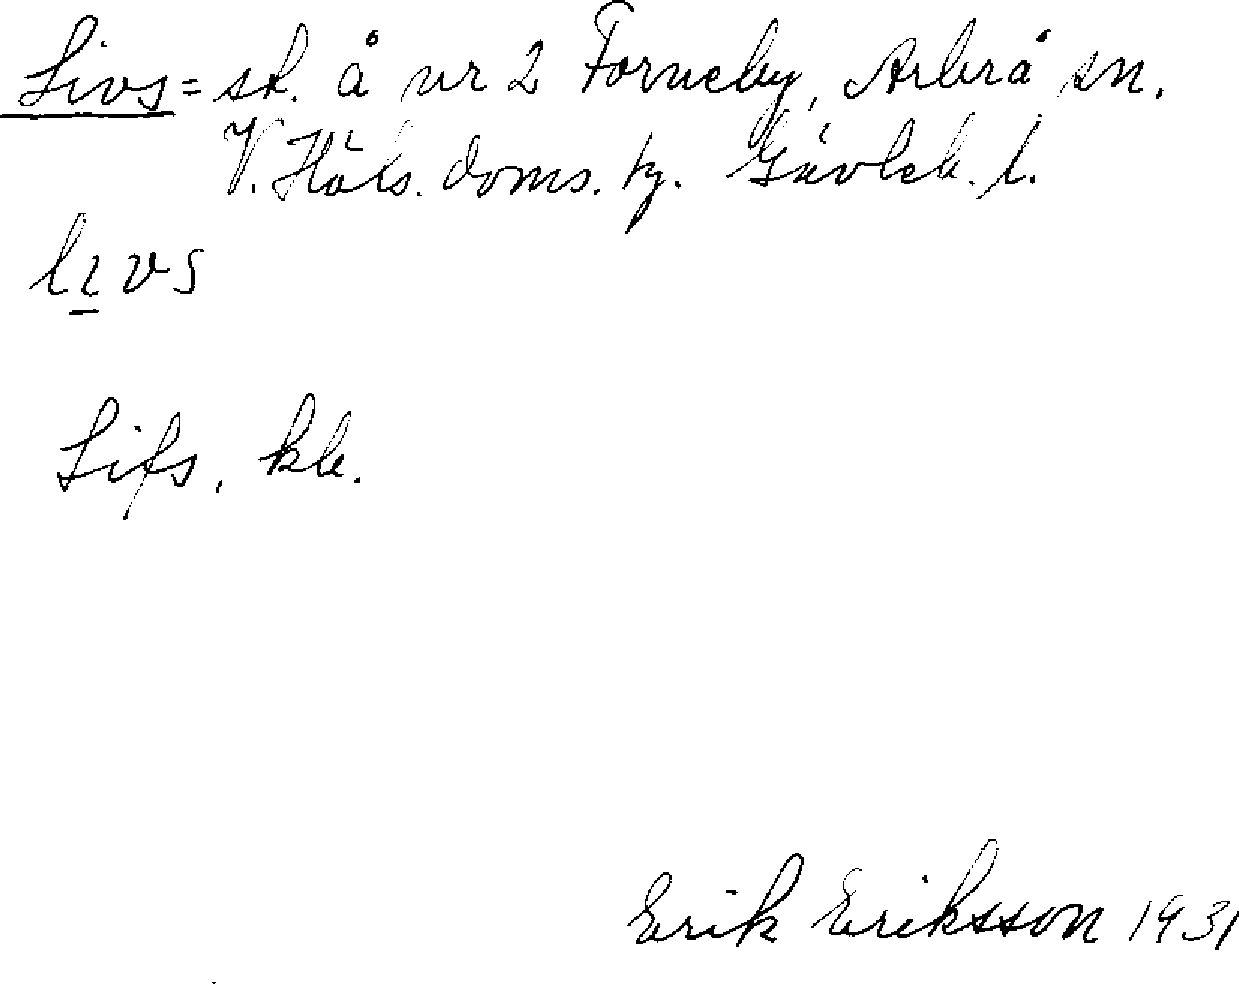 Livs = st. å nr 2 Forneby, Arbrå sn.
V. Häls. doms. hg. Gävleb. l.
lı̱vs
Lifs, kb.
Erik Eriksson 1931